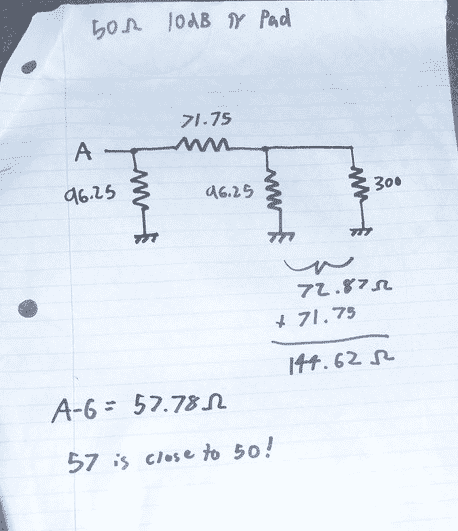 50Ω 10dB π Pad
71.75
A
96.25
96.25
300
72.87Ω
+ 71.75
144.62 Ω
A-G = 57.78Ω
57 is close to 50!